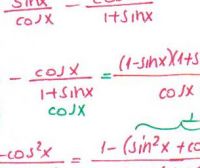 sinx/cosx - cosx/1+sinx
- cosx/1+sinx = (1-sinx)(1+s/cosx
cosx
-cos²x = 1-(sin²x+co